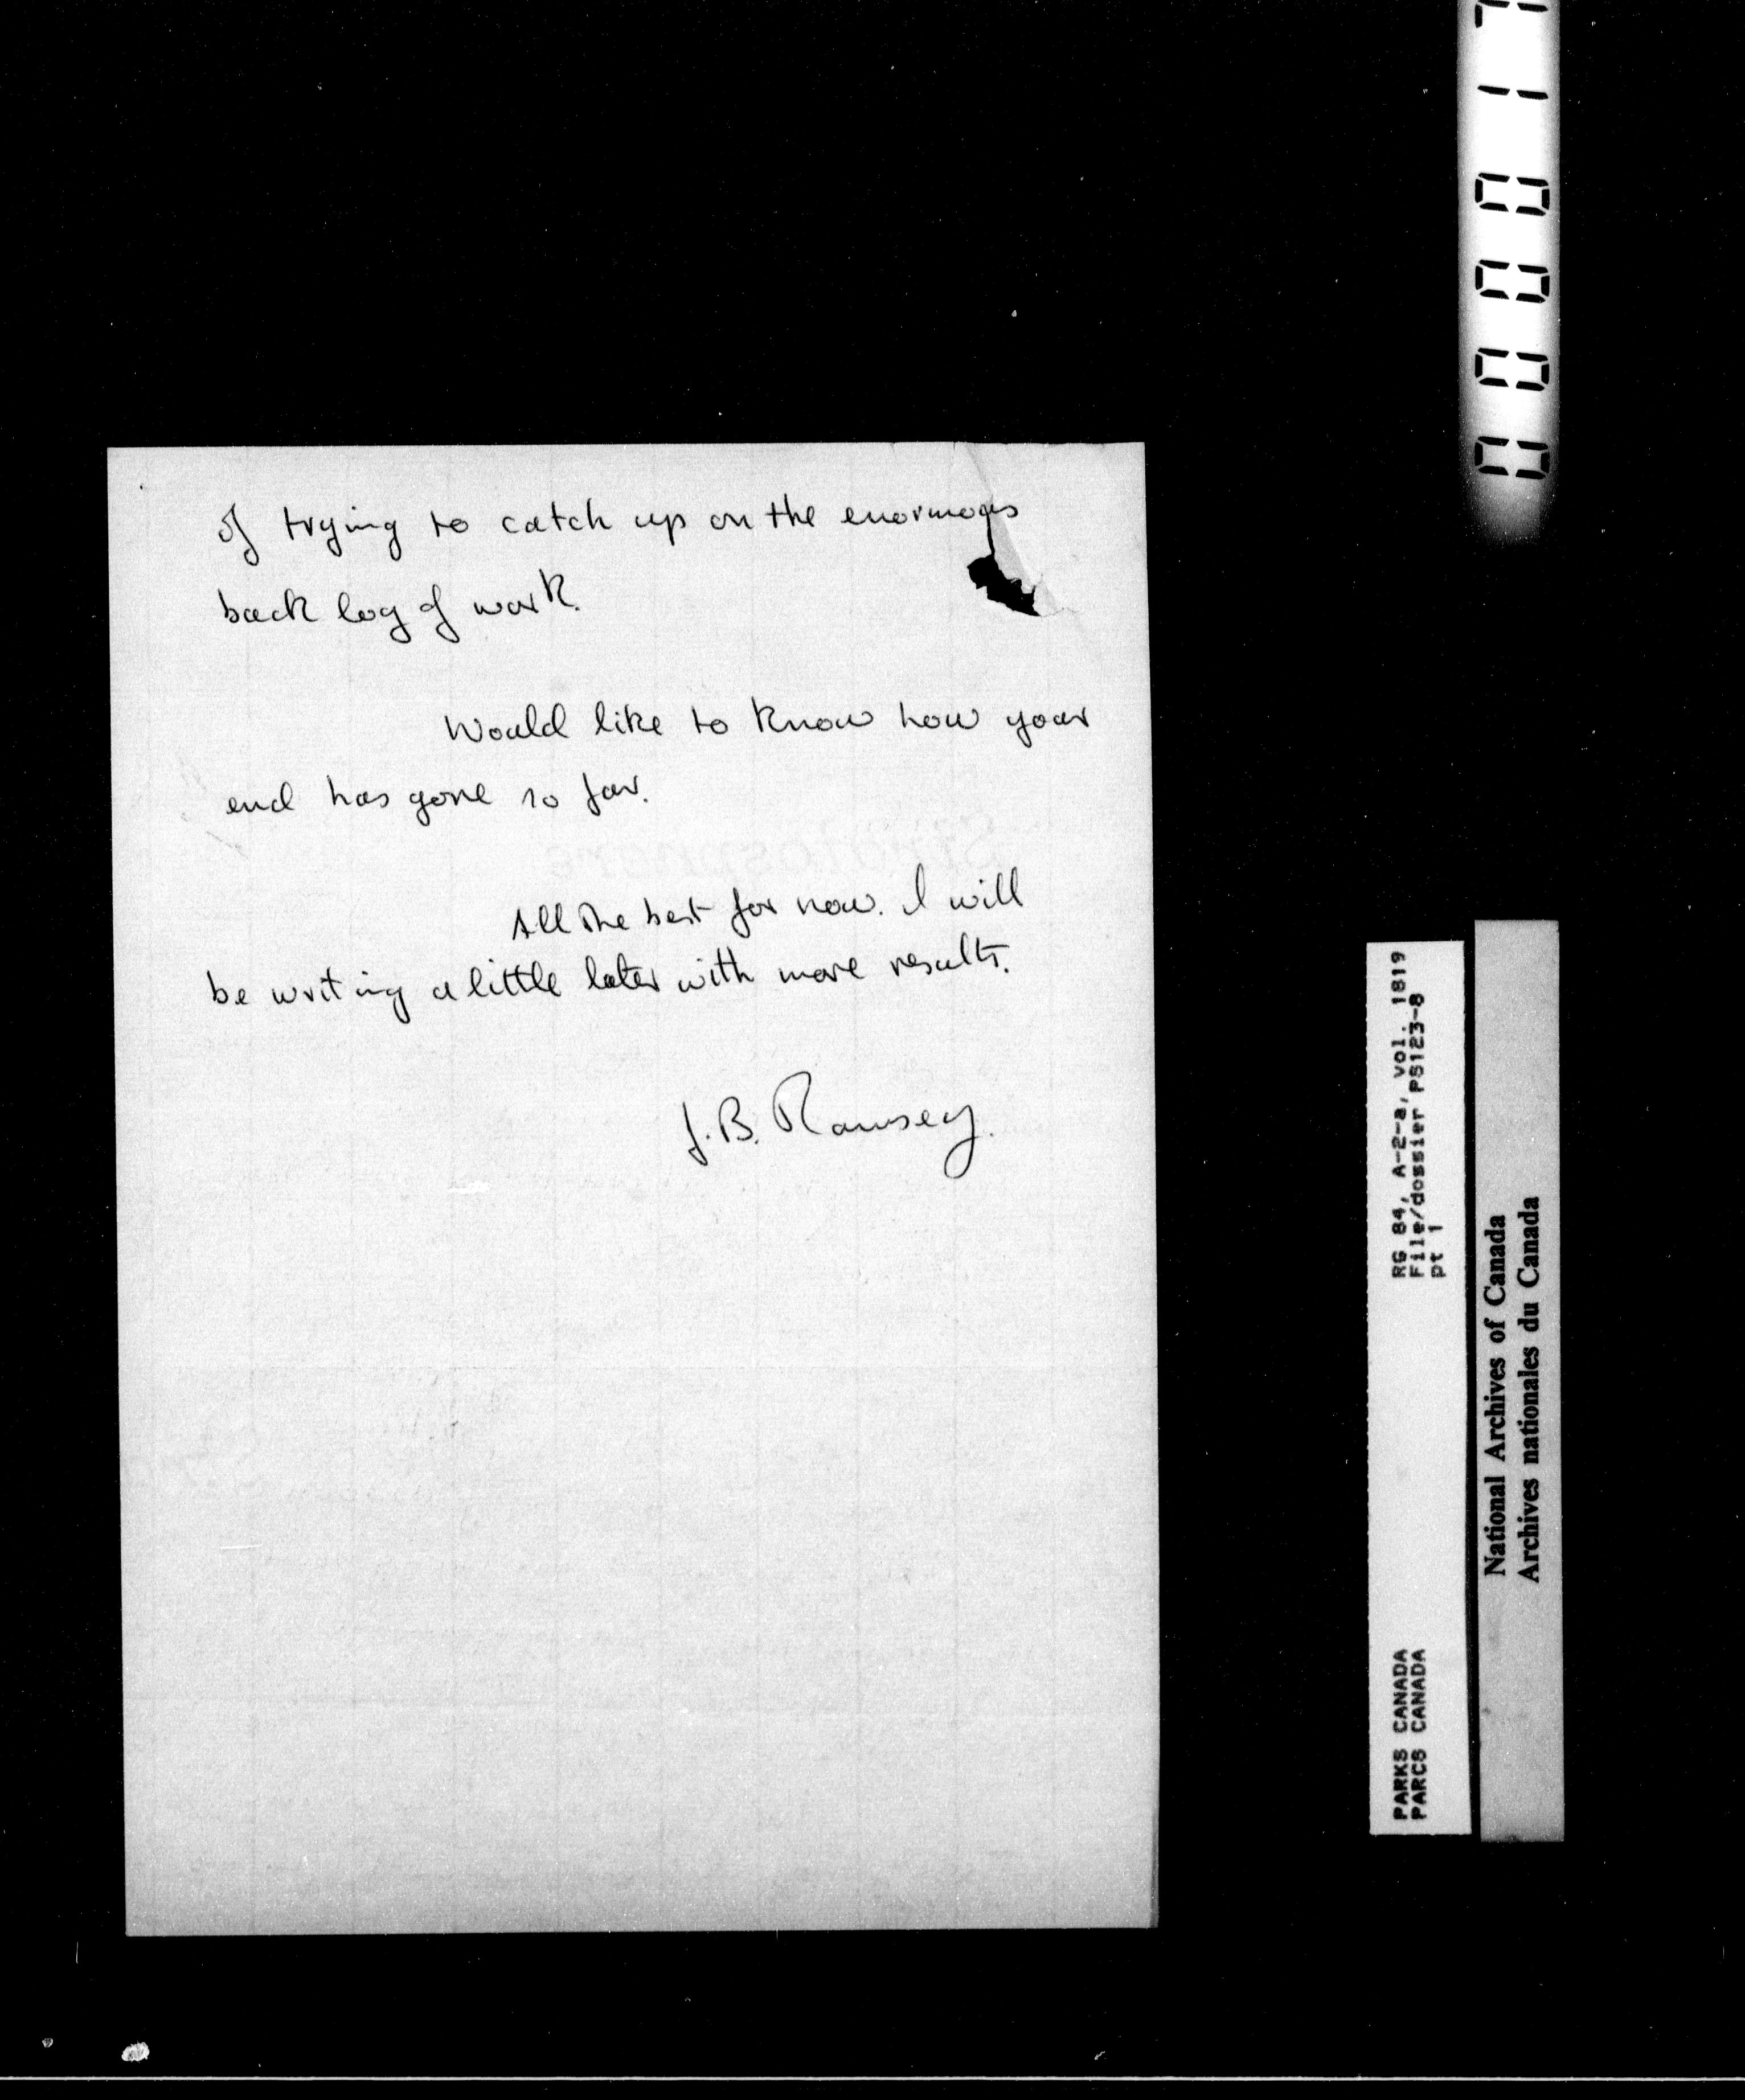 of trying to catch up on the enormous
back log of work.
Would like to know how your
end has gone so far.
All the best for now. I will
be writing a little later with more results.
J.B. Ramsey.
RG 84, A-2-a, vol. 1819
File/dossier PS123-8
pt 1
PARKS CANADA
PARCS CANADA
National Archives of Canada
Archives nationales du Canada